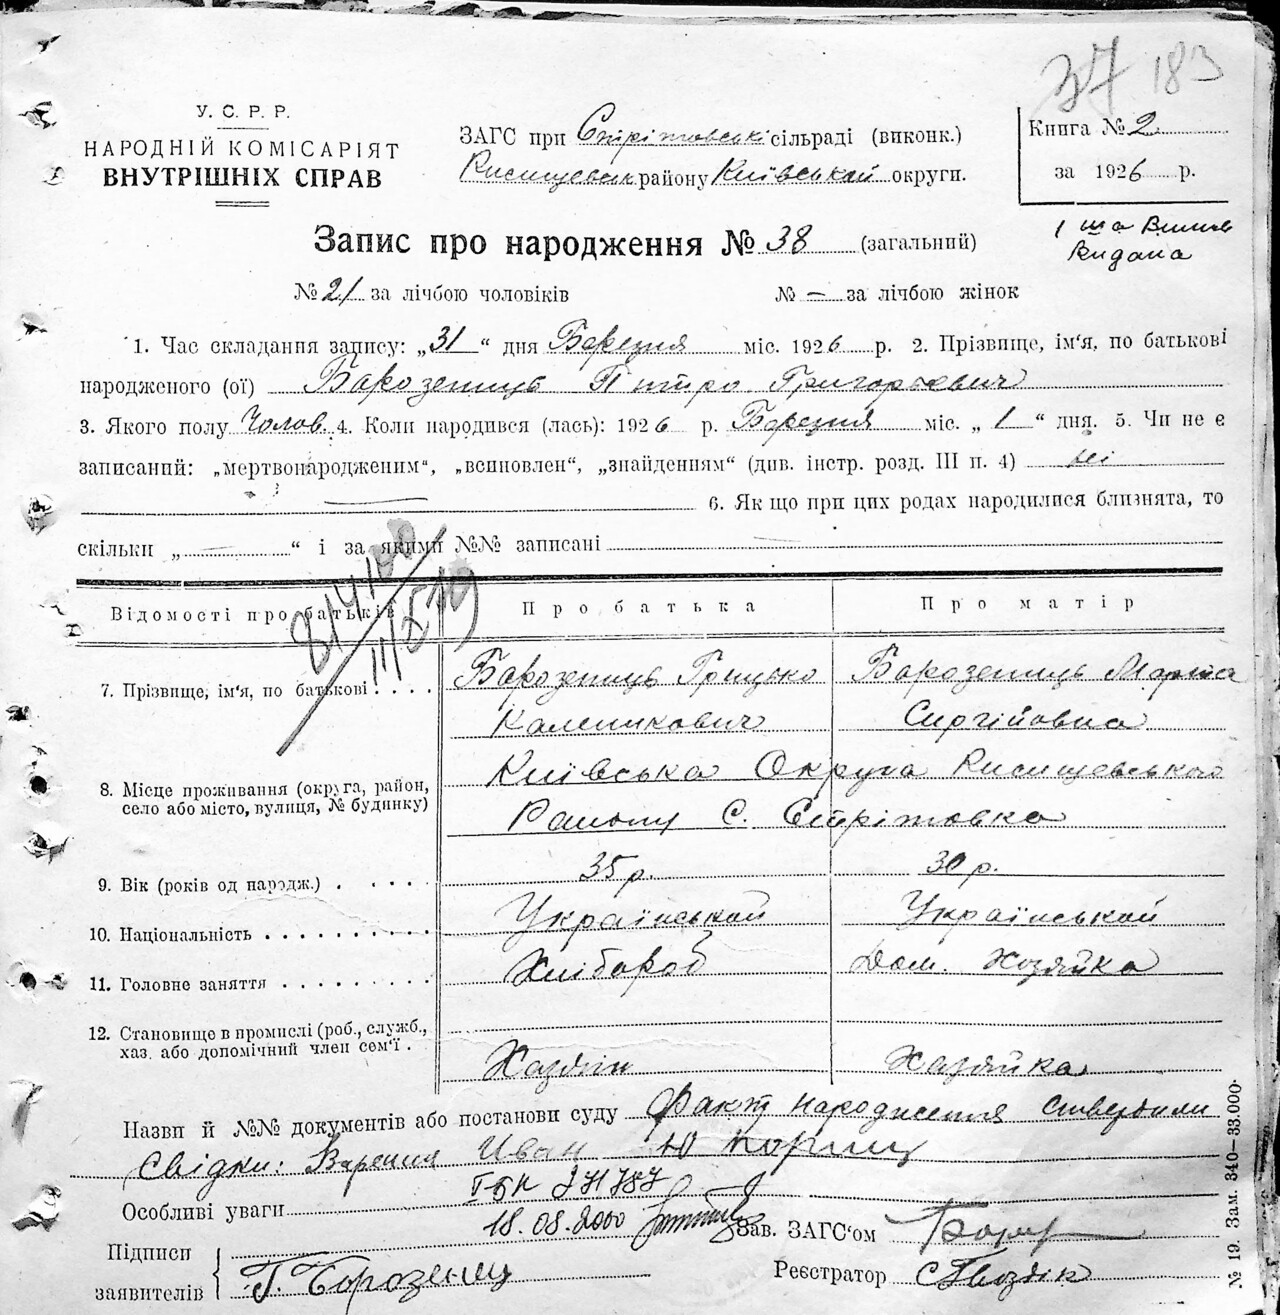 37 183
У. С. Р. Р.
НАРОДНІЙ КОМІСАРІЯТ
ВНУТРІШНІХ СПРАВ
ЗАГС при Стрітовські сільраді (виконк.)
району Київськой округи.
Книга № 2
за 1926 р.
Видана
Запис про народження № 38 (загальний)
№ 21 за лічбою чоловіків № — за лічбою жінок
1. Час складання запису: „31“ дня Березня міс. 1926 р. 2. Прізвище, ім'я, по батькові
народженого (ої) Барозенець Питро Григорьевич
3. Якого полу Чолов. 4. Коли народився (лась): 1926 р. Березня міс. „1“ дня. 5. Чи не є
записаний: „мертвонародженим“, „всиновлен“, „знайденням“ (див. інстр. розд. III п. 4) ні
6. Як що при цих родах народилися близнята, то
скільки „—“ і за якими №№ записані —
Відомості про батьків Про батька Про матір
7. Прізвище, ім'я, по батькові . . . . Барозенець Грицько Барозенець Марія
Каленикович Сиргійовна
8. Місце проживання (округа, район,
село або місто, вулиця, № будинку)
Київська Округа
Району С. Стрітовка
9. Вік (років од народж.) . . . . . 35 р. 30 р.
10. Національність . . . . . . . . . . Українськой Українськой
11. Головне заняття . . . . . . . . . Хлібороб Дом. Хозяйка
12. Становище в промислі (роб., служб.,
хаз. або допомічний член сем'ї . Хазяін Хазяйка
Назви й №№ документів або постанови суду Факт народження ствердили
Свідки: Иван
271787
Особливі уваги 18.08.2000
Зав. ЗАГС'ом
Підписи
заявителів Г. Борозенец
Реєстратор Гвоздік
№ 19. Зам. 340—33.000.